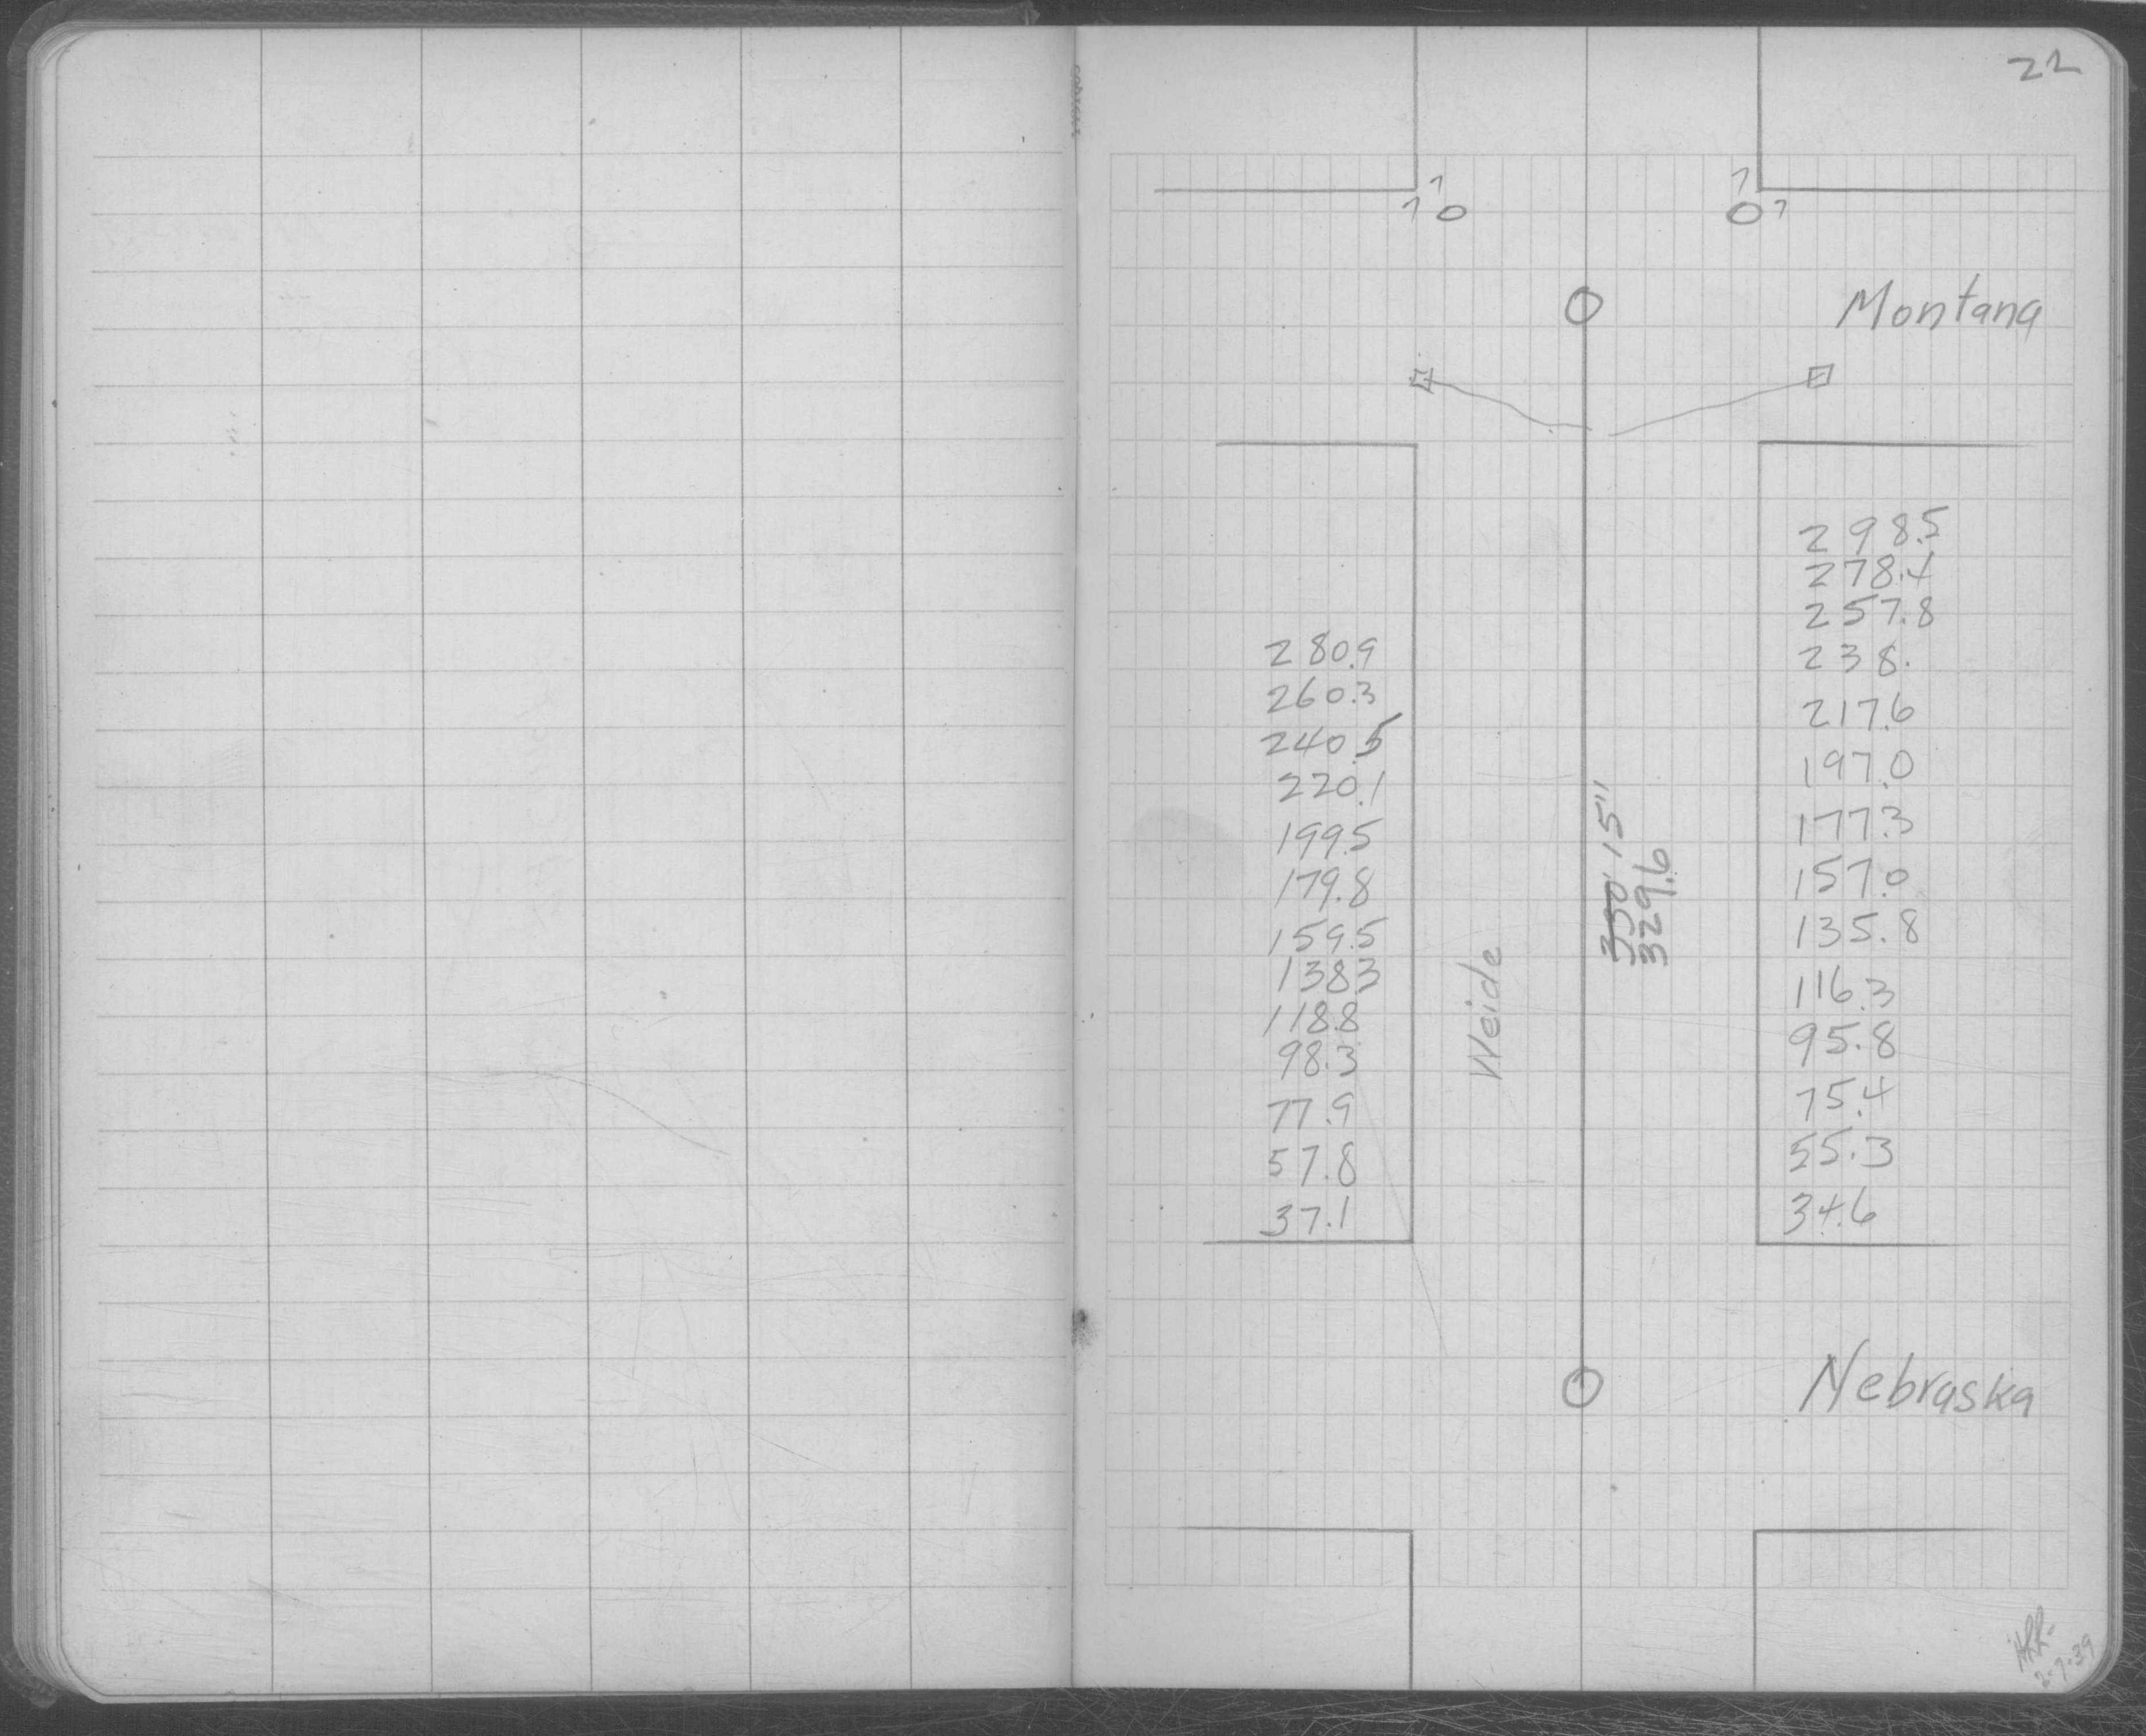 22
1 1
1 0 0 1
Montana
298.5
278.4
257.8
238.
217.6
197.0
177.3
157.0
135.8
116.3
95.8
75.4
55.3
34.6
280.9
260.3
240.5
220.1
199.5
179.8
159.5
138.3
118.8
98.3
77.9
57.8
37.1
Weide
330' 15"
329.6
Nebraska
2-7-39